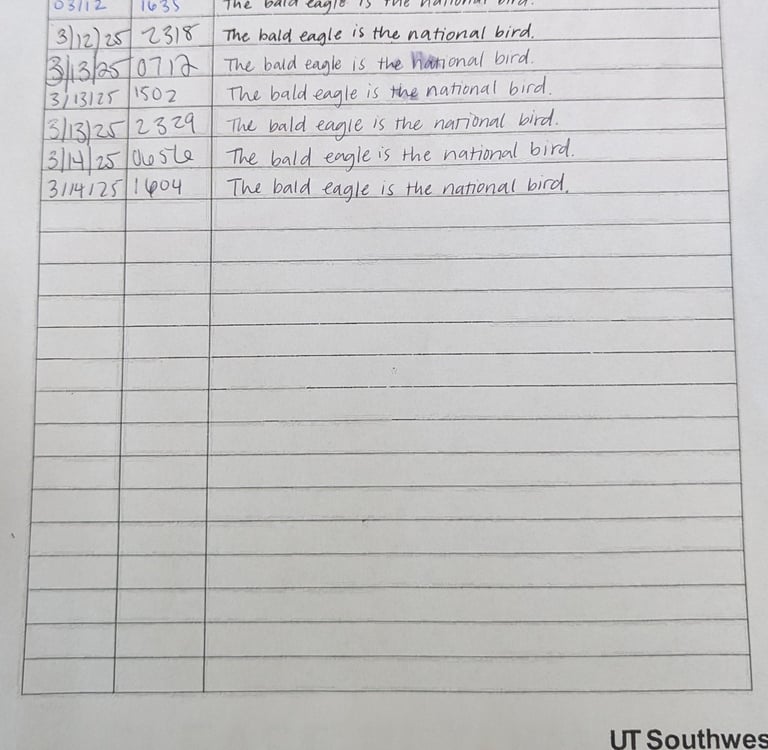 03/12 1635 The bald eagle is the national bird.
3/12/25 2318 The bald eagle is the national bird.
3/13/25 0712 The bald eagle is the national bird.
3/13/25 1502 The bald eagle is the national bird.
3/13/25 2329 The bald eagle is the national bird.
3/14/25 0656 The bald eagle is the national bird.
3/14/25 1604 The bald eagle is the national bird.
UT Southwes